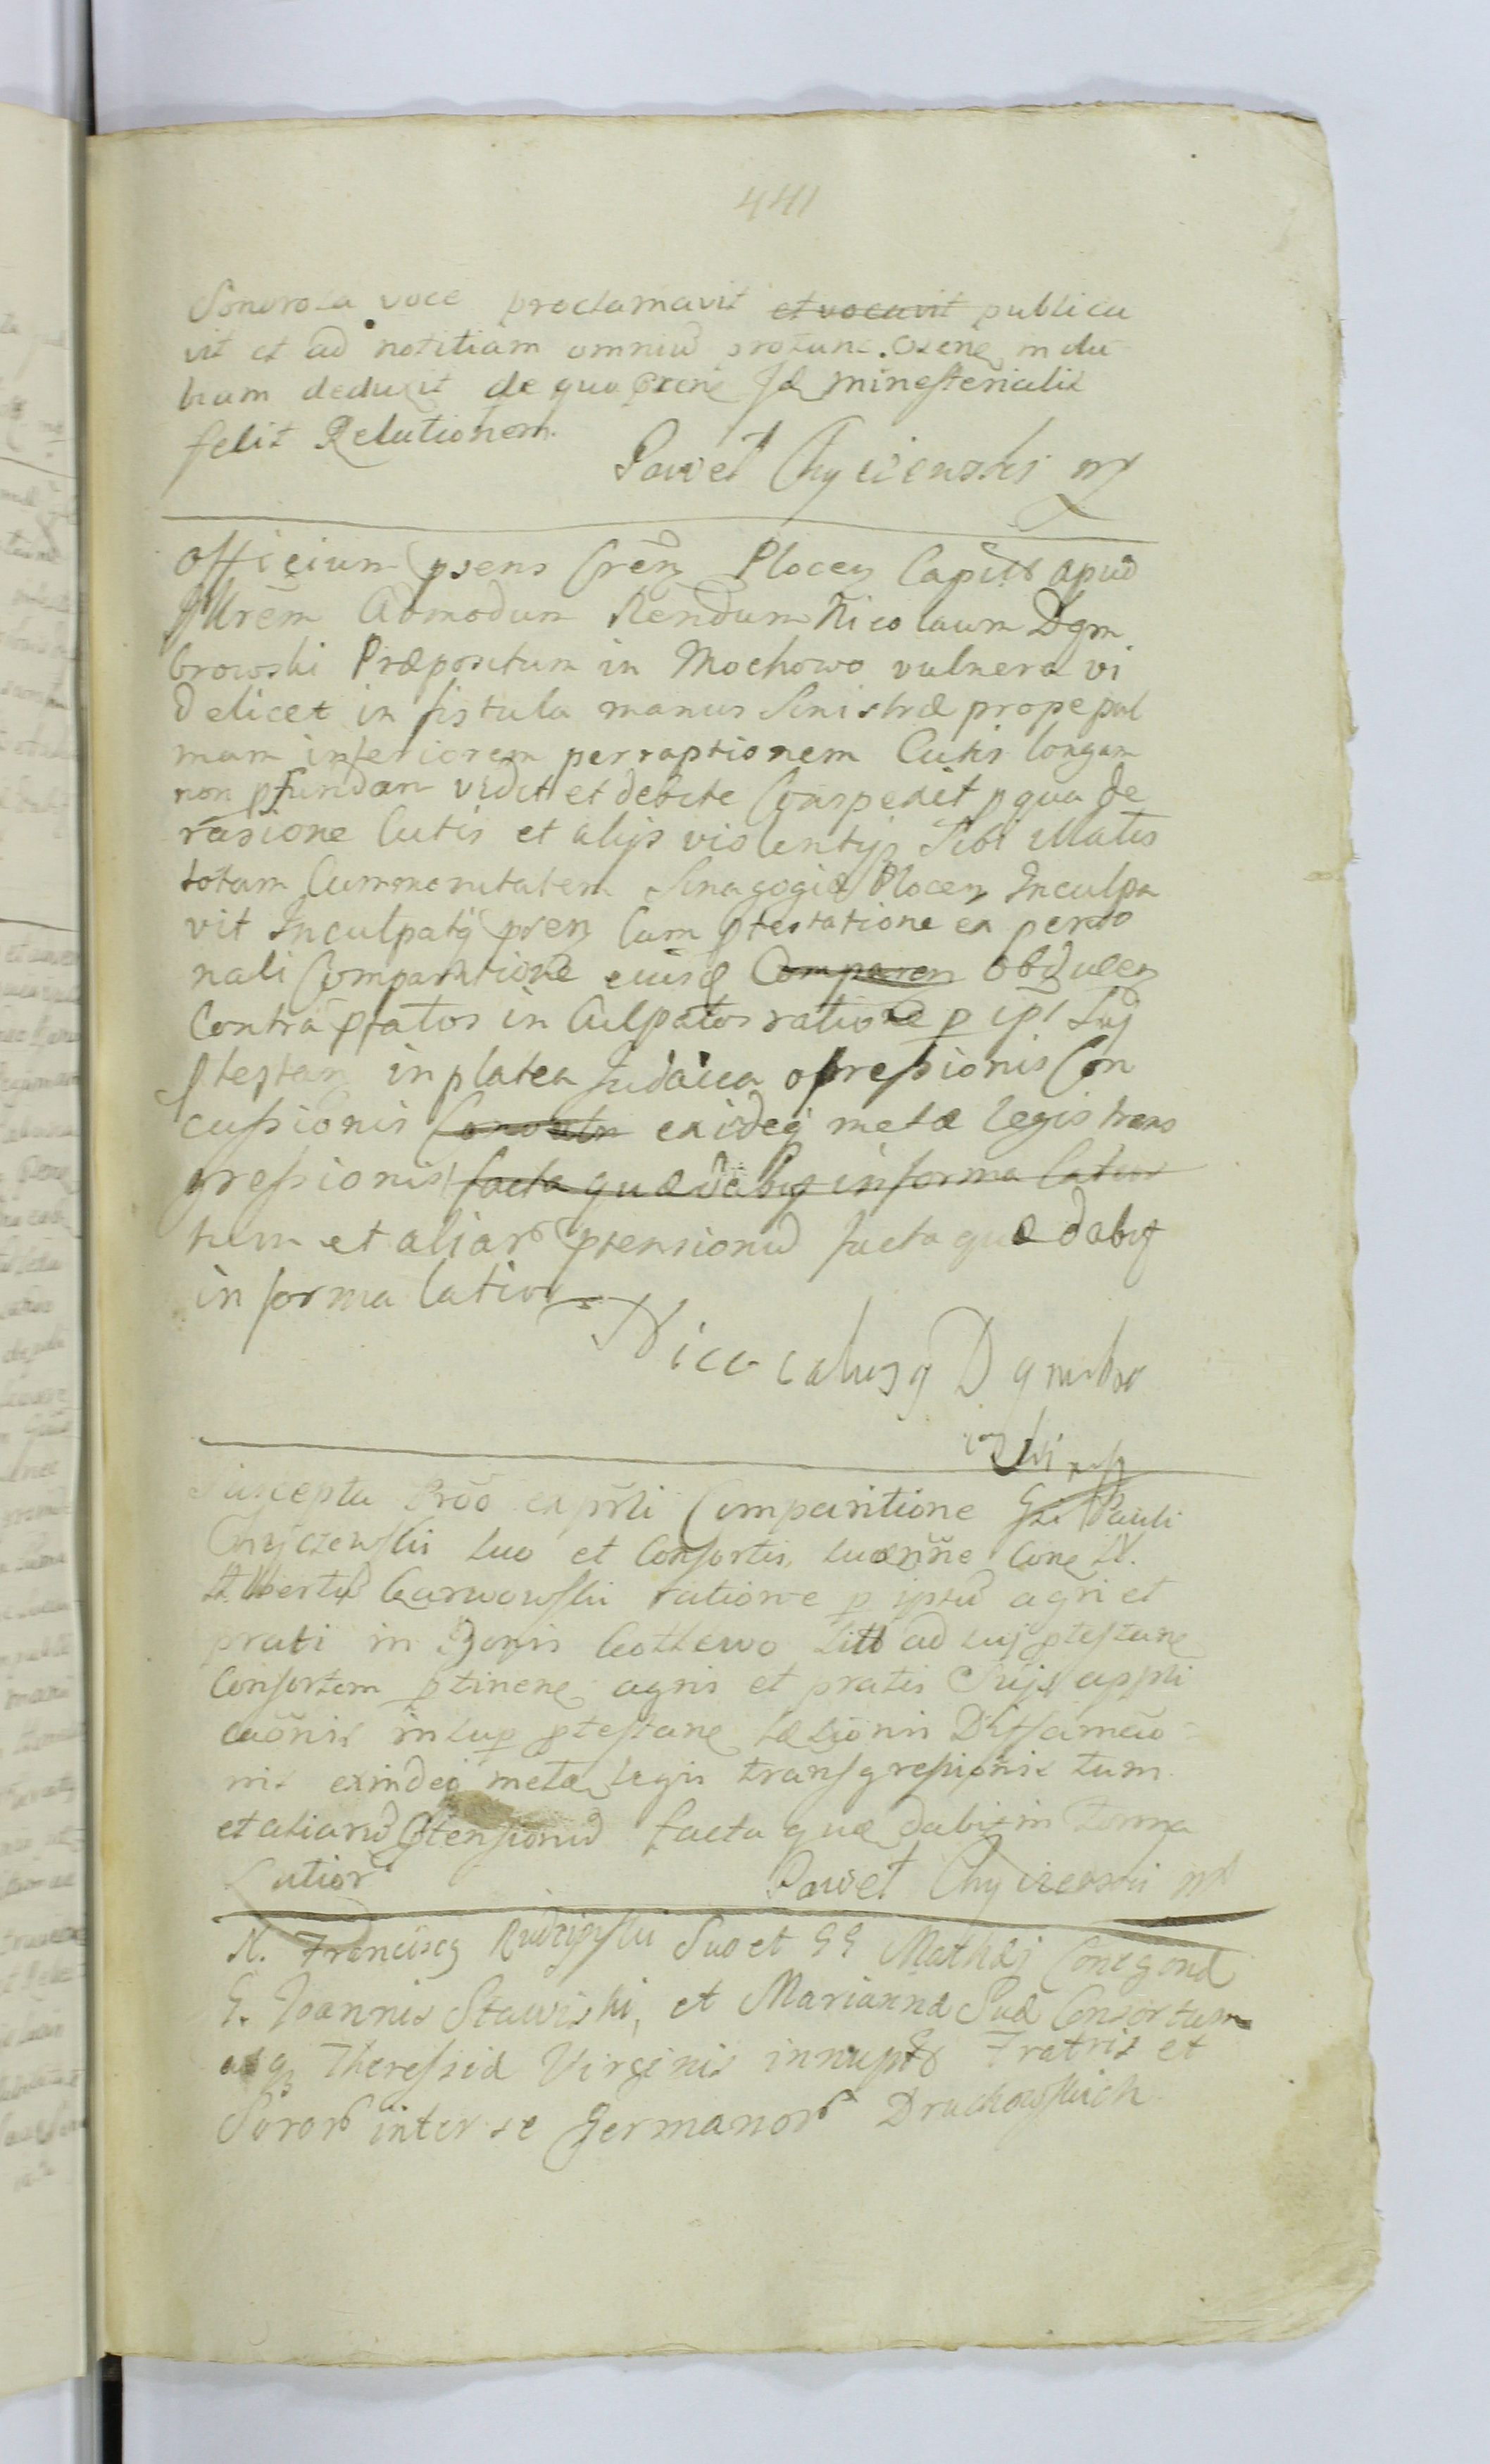 441
Sonorosa voce proclamavit et vocavit publica
vit et ad notitiam omniu protunc existen indu
biam deduxit de quo praem Id ministerialis
fecit Relationem.
Paweł Chyczewski mp
Officium psens Cren Plocen Capit apud
Illrem Admodum Rendum Nicolaum Dąm
browski Præpositum in Mochowo vulnera vi
delicet in fistula manus Sinistræ prope pal
mam inferiorem perraptionem Cutis longam
non pfundam vidit et debite Conspexit p qua de
rasione Cutis et alijs violentijs Sibi illatis
totam Cummonitatem Sinagogiæ Plocen Inculpa
vit Inculpatq pren Cum ptestatione ex perso
nali Comparitione eiusd Comparen obducen
Contra pfatos in Culpatos ratione p ipt Suj
ptestan in platea Judaica opressionis Con
cussionis exideq metæ legis trans
gressionis facta quæ dabit in forma latior
tum et aliar ptensionu facta quæ dabit
in forma latior
Nicolausq Dąmbro
wski mp
Suscepta Prõo ex psli Comparitione Gsi Pauli
Chyczewski suo et Consortis suæ nne Cone N.
Alberti Karwowski ratione p iptu agri et
prati in Bonis Kottewo sitt ad suj ptestane
Consortem ptinene agris et pratis Sujs appli
caonis insup ptestane læsionis Diffamao
nis exindeq metæ legis transgressionis tum
et aliaru ptensionu facta quæ dabit in Forma
Latior
Paweł Chyczewski mp
N. Franciscq Rudzipski Suo et GG Mathæj Conegond
G. Joannis Stawiski, et Mariannæ Suæ Consortum
atq Theressiæ Virginis innuptæ Fratris et
Soror inter se Germanor Druchowskich